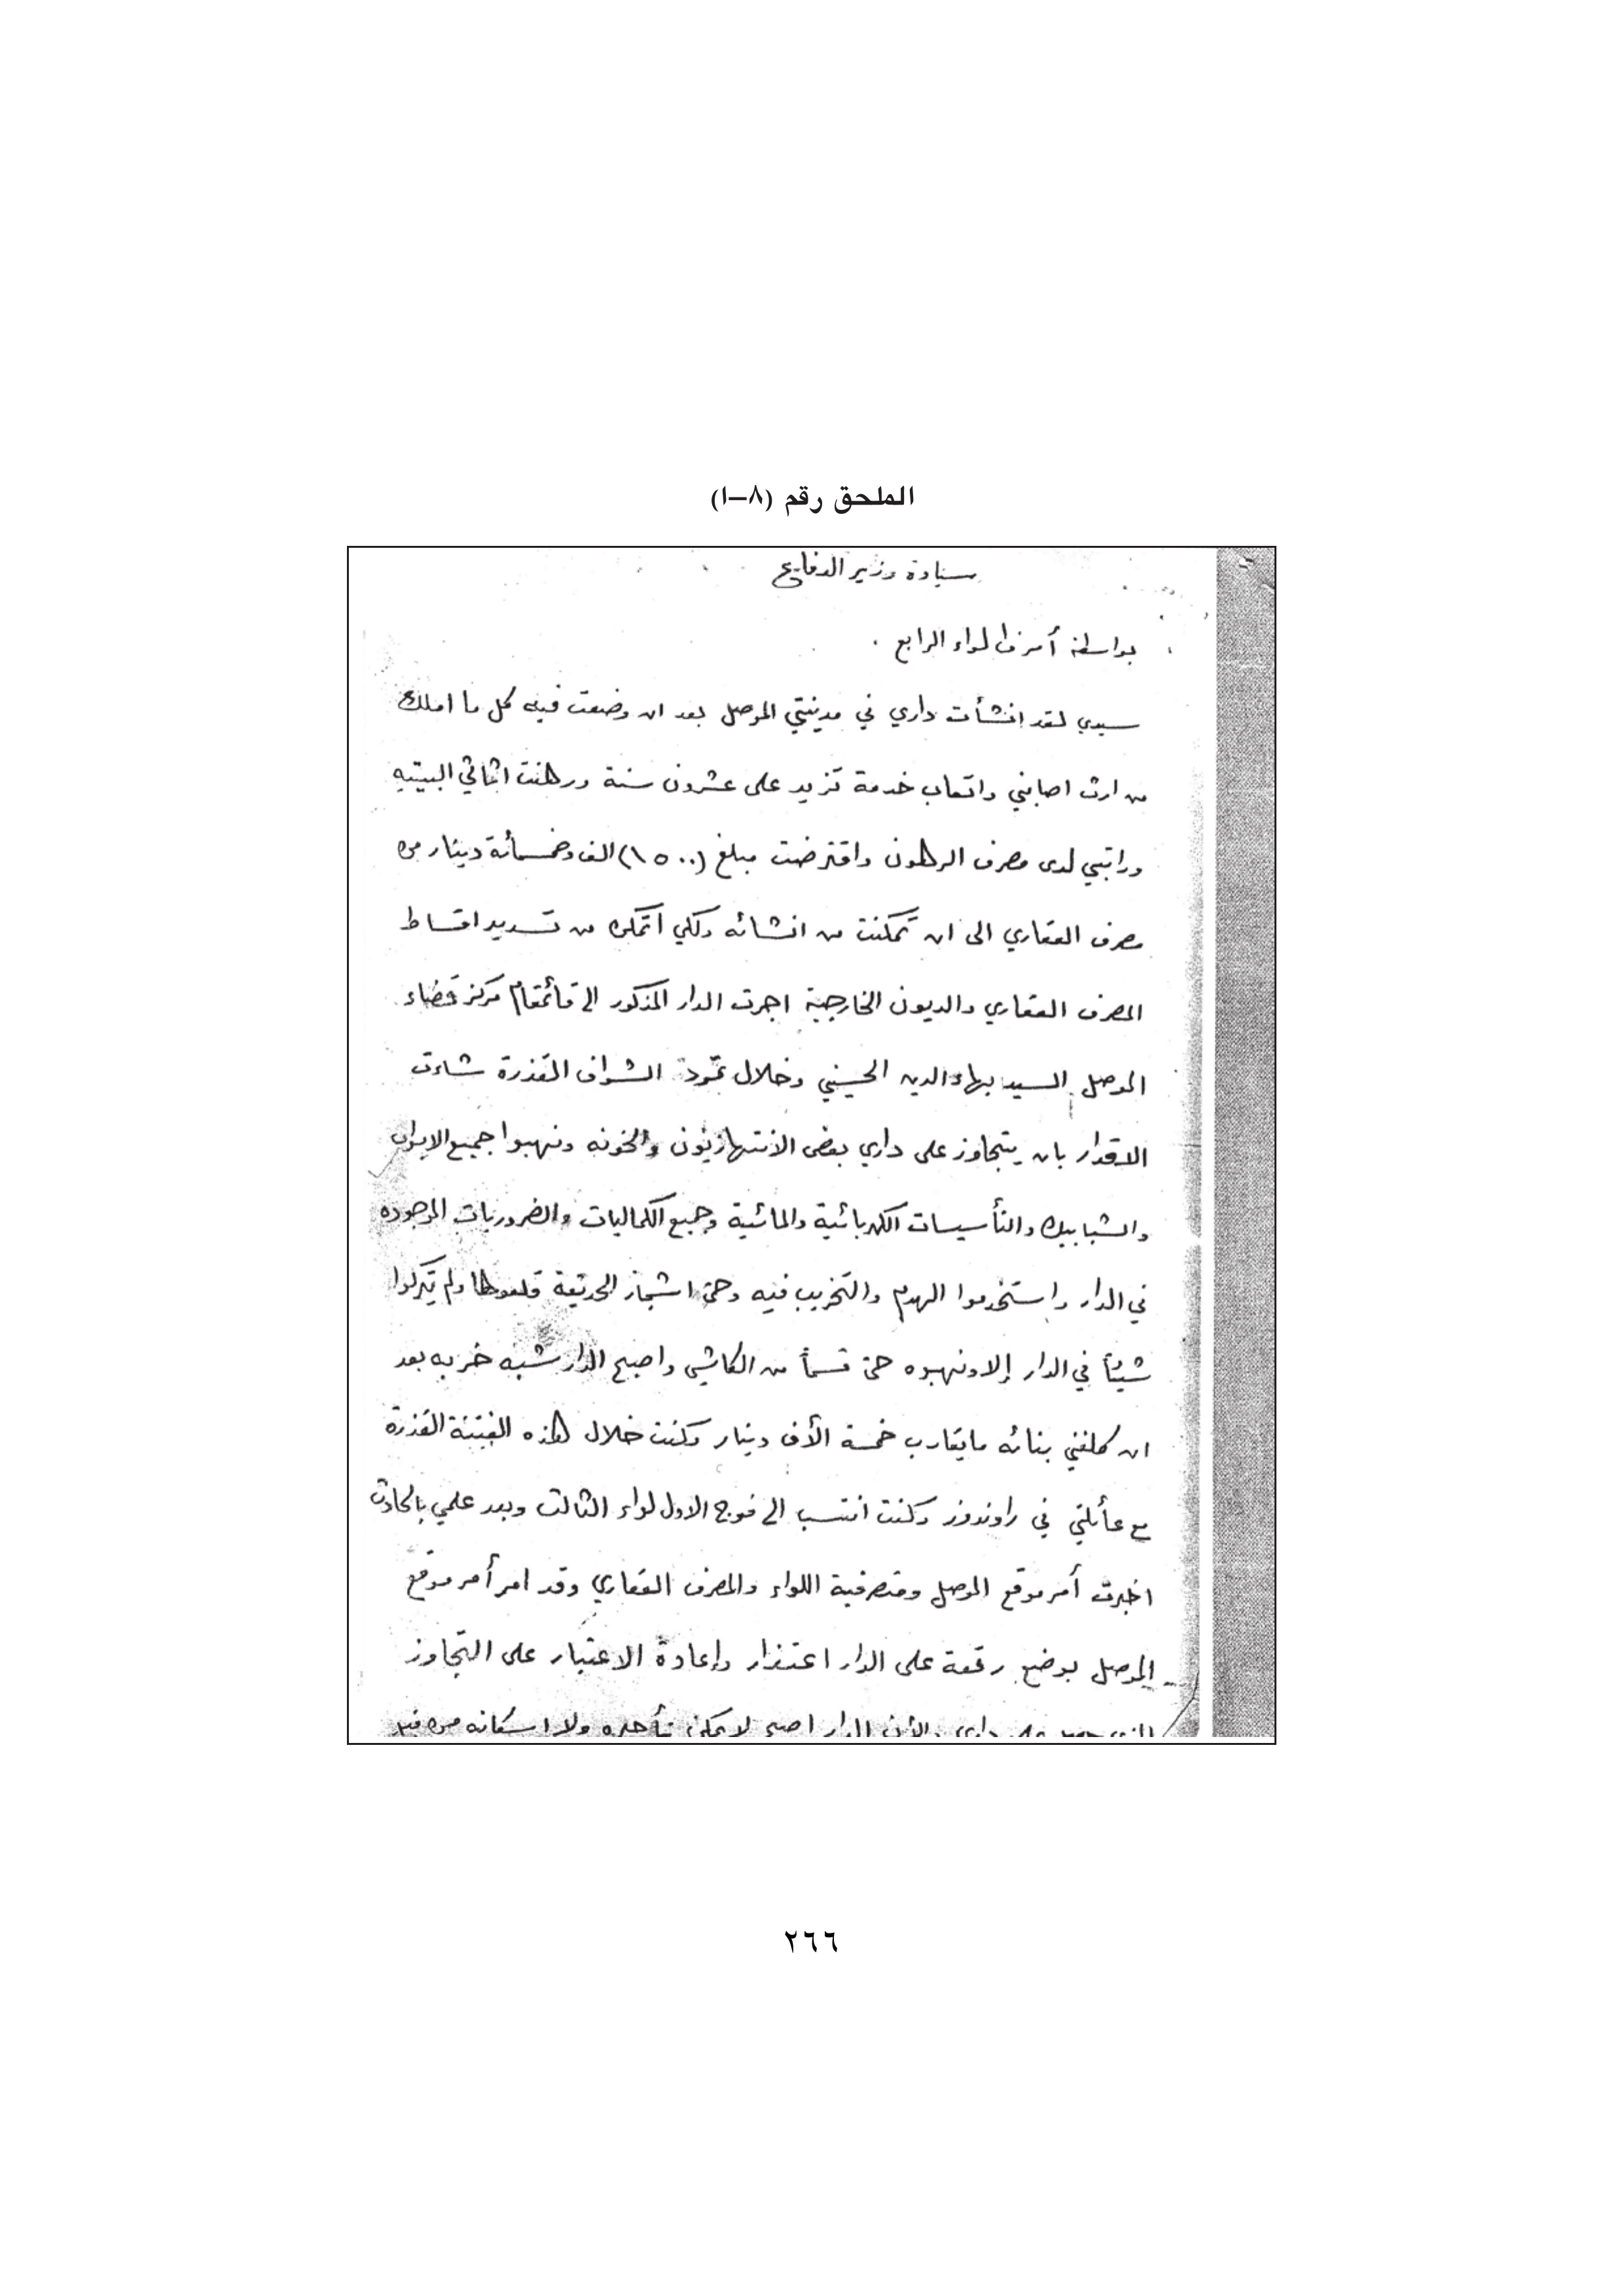 الملحق رقم (٨–١)
سيادة وزير الدفاع
بواسطة أمر اللواء الرابع .
سيدي لقد انشأت داري في مدينتي الموصل بعد ان وضعت فيه كل ما املك
من ارث اصابني واتعاب خدمة تزيد على عشرون سنة ورهنت اثاثي البيتيه
وراتبي لدى مصرف الرهون واقترضت مبلغ (١٥٠٠) الف وخمسمأئة دينار من
مصرف العقاري الى ان تمكنت من انشائه ولكي أتمكن من تسديد اقساط
المصرف العقاري والديون الخارجية اجرت الدار المذكور الى قائمقام مركز قضاء
الموصل السيد بهاءالدين الحسيني وخلال تمرد الشواف القذرة شاءت
الاقدار بان يتجاوز على داري بعض الانتهازيون والخونه ونهبوا جميع الابواب
والشبابيك والتأسيسات الكهربائية والمائية وجميع الكماليات والضروريات الموجوده
في الدار واستخدموا الهدم والتخريب فيه وحتى اشجار الحديقة قلعوها ولم يتركوا
شيئاً في الدار إلا ونهبوه حتى قسماً من الكاشي واصبح الدار شبه خربه بعد
ان كلفني بنائه مايقارب خمسة الأف دينار وكنت خلال هذه الفتنة القذرة
مع عأئلتي في راوندوز وكنت انتسب الى فوج الاول لواء الثالث وبعد علمي بالحادث
اخبرت أمر موقع الموصل ومتصرفية اللواء والمصرف العقاري وقد امر أمر موقع
الموصل بوضع رقعة على الدار اعتذار وإعادة الاعتبار على التجاوز
الذي حصل على داري والأن الدار اصبح لا يمكن تأجيره ولا اسكانه من قبل
٢٦٦